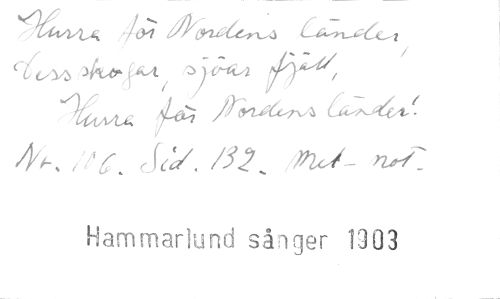 Hurra för Nordens länder,
Dess skogar, sjöar fjäll,
Hurra för Nordens länder!
Nr. 106. Sid. 132. Met- not-
Hammarlund sånger 1903